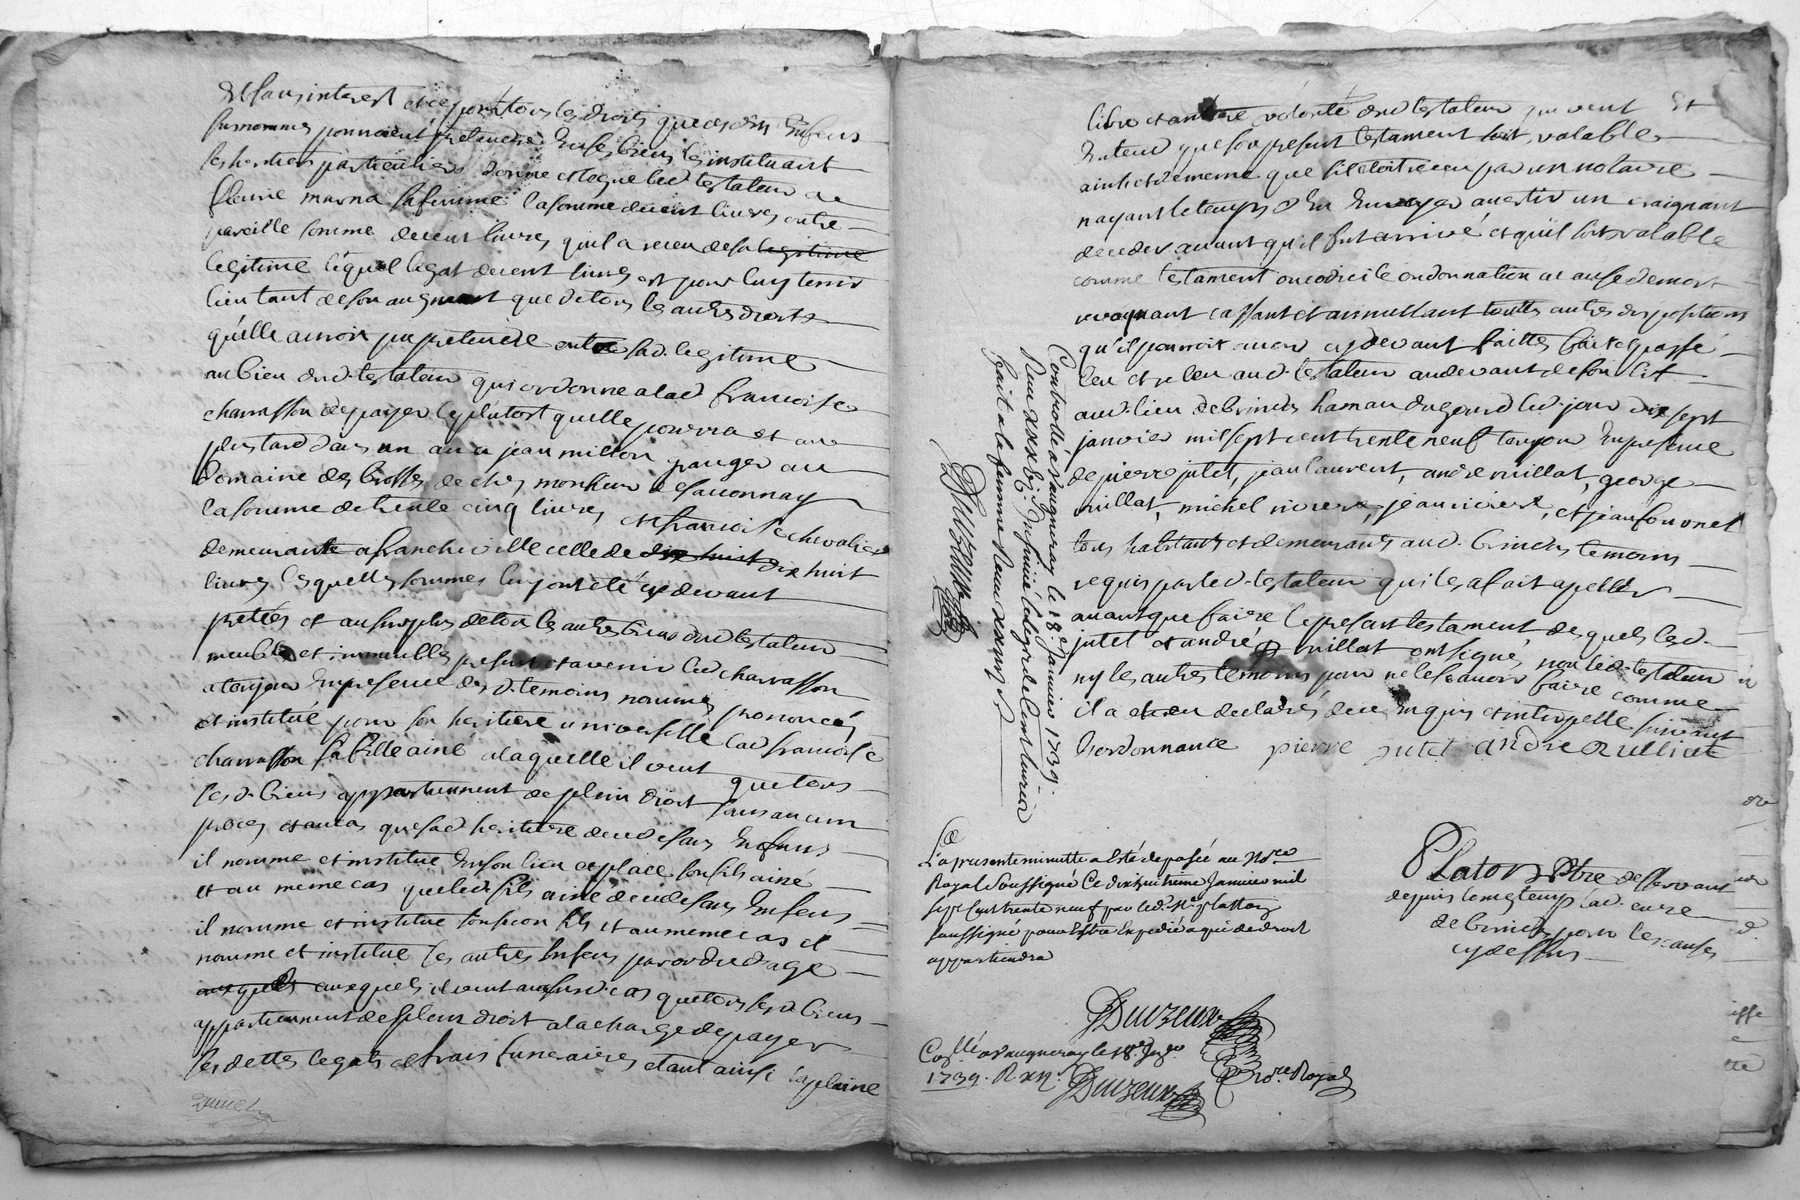 et sans interest et ce pour tous les droits que ces dits Enfens
surnommes pourroient pretendre En ses biens les instituant
ses heritiers particuliers donne et legue led testateur a
fleurie marna sa femme la somme de cent livres outre
pareille somme de cent livres quil a receu de sa legitime
legitime lequel legat de cent livres est pour luy tenir
lieu tant de son augment que de tous les autres droits
qu'elle auroit pu pretendre outre sad. legitime
au bien dud. testateur qui ordonne a lad francoise
charasson de payer le plutost quelle pourra et au
plus tard dans un an a jean million granger au
domaine des brosses de chez monsieur de sauonnay
la somme de trente cinq livres et francoise chevalier
demeurante a francheville celle de dix huit dix huit
livres lesquelles sommes luy ont été cy devant
pretées et au surplus de tous les autres biens dud testateur
meubles et immeubles present et avenir led charasson
a toujour En presence des d. temoins nommé prononcé
et institué pour son heritiere universelle lad francoise
charasson sa fille ainé a laquelle il veut que tous
ses d. biens appartiennent de plein droit sans aucun
proces et au cas que sad heritiere decede sans Enfens
il nomme et institue En son lieu et place son fils ainé
et au meme cas que led. fils ainé decede sans Enfens
il nomme et institue son second fils et au meme cas il
nomme et institue les autres Enfens par ordre d'age
auxquels auxquels il veut aususd. cas que tous ses d. biens
appartiennent de plein droit a la charge de payer
ses dettes legats et frais funeraires etant ainsi la plaine
libre et volonté dud testateur qui veut Et
Entend que son present testament soit valable
ainsi et de meme que s'il etoit receu par un notaire
n'ayant le temps d'En Envoyer avertir un craignant
deceder avant qu'il fut arrivé et qu'il soit valable
comme testament ou codicile ou donnation a cause de mort
revoquant cassant et annullant toutes autres dispositions
qu'il pourroit avoir cy devant faittes fait et passé
leu et releu aud. testateur au devant de son lit
aud. lieu de brindas hameau du gourd led. jour dix sept
janvier mil sept cent trente neuf toujour En presence
de pierre jutet, jean laurent, andre rulliat, george
rulliat, michel riviere, jean riviere, et jean fournel
tous habitants et demeurants aud. brindas temoins
requis par led. testateur qui les a fait apeller
avant que faire le present testament desquels led.
jutet et andré rulliat ont signé, non led. testateur
ny les autres temoins pour ne le scavoir faire comme
il a declarés de ce Enquis et interpellé suivant
l'ordonnance pierre jutet andre Rulliat
Controllé a vaugneray le 18e janvier 1739.
fait a la femme Receu
DuvZeux
La presente minutte a Esté deposée au Nore
Royal soussigné Ce dixhuitieme Janvier mil
sept cent trente neuf par led. Mre platton
soussigné pour Estre Expedié a qui de droit
appartiendra
Platon Ptre desservant
depuis longtemps lad. cure
de brindas pour les causes
cy dessus
Duvzeux
Nore Royal
Conllé a vaugneray le 18e Janvr
1739. R xii s. Duvzeux